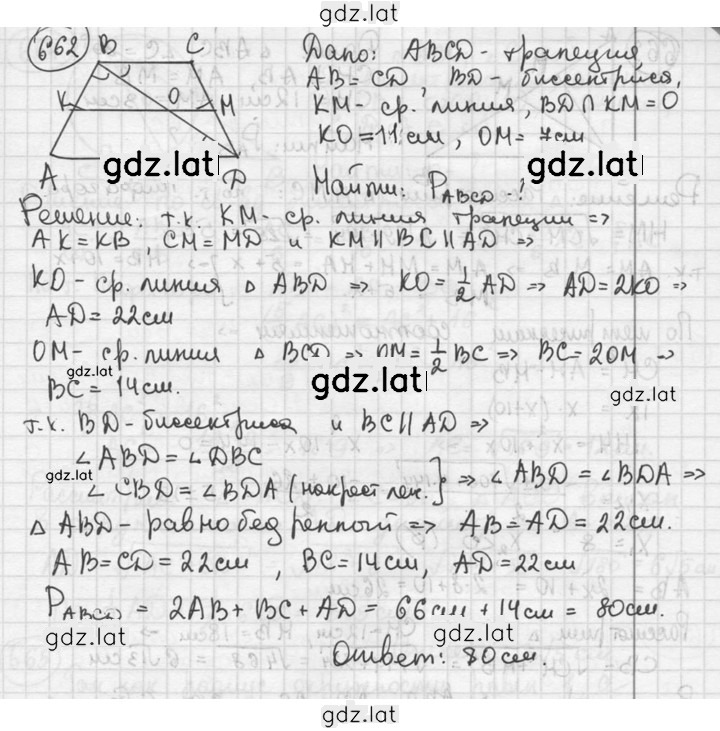 gdz.latl
662
B C
K O M
A D
Дано: ABCD - трапеция
AB = CD, BD - биссектриса,
KM - ср. линия, BD ∩ KM = O
KO = 11 см, OM = 7 см
gdz.latl
gdz.latl
Найти: P ABCD
Решение: т.к. KM - ср. линия трапеции =>
AK = KB, CM = MD и KM || BC || AD =>
KO - ср. линия △ ABD => KO = 1/2 AD => AD = 2KO =>
AD = 22 см
OM - ср. линия △ BCD => OM = 1/2 BC => BC = 2OM =>
gdz.latl
BC = 14 см.
gdz.latl
gdz.latl
т.к. BD - биссектриса и BC || AD =>
∠ ABD = ∠ DBC
gdz.latl
∠ CBD = ∠ BDA (накрест леж.] } => ∠ ABD = ∠ BDA =>
△ ABD - равнобедренный => AB = AD = 22 см.
AB = CD = 22 см, BC = 14 см, AD = 22 см
P ABCD = 2AB + BC + AD = 66 см + 14 см = 80 см.
gdz.latl
gdz.latl
Ответ: 80 см.
gdz.latl